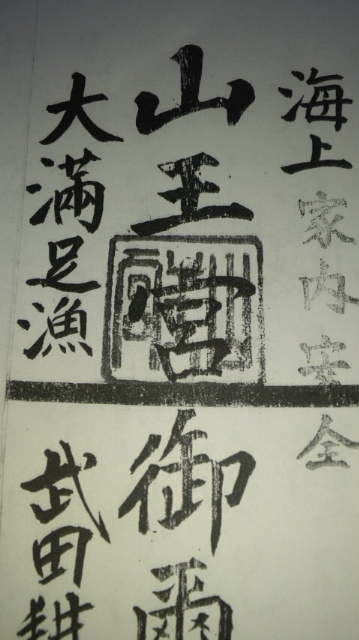 海上家内安全
山王宮御爾
大満足漁
武田耕